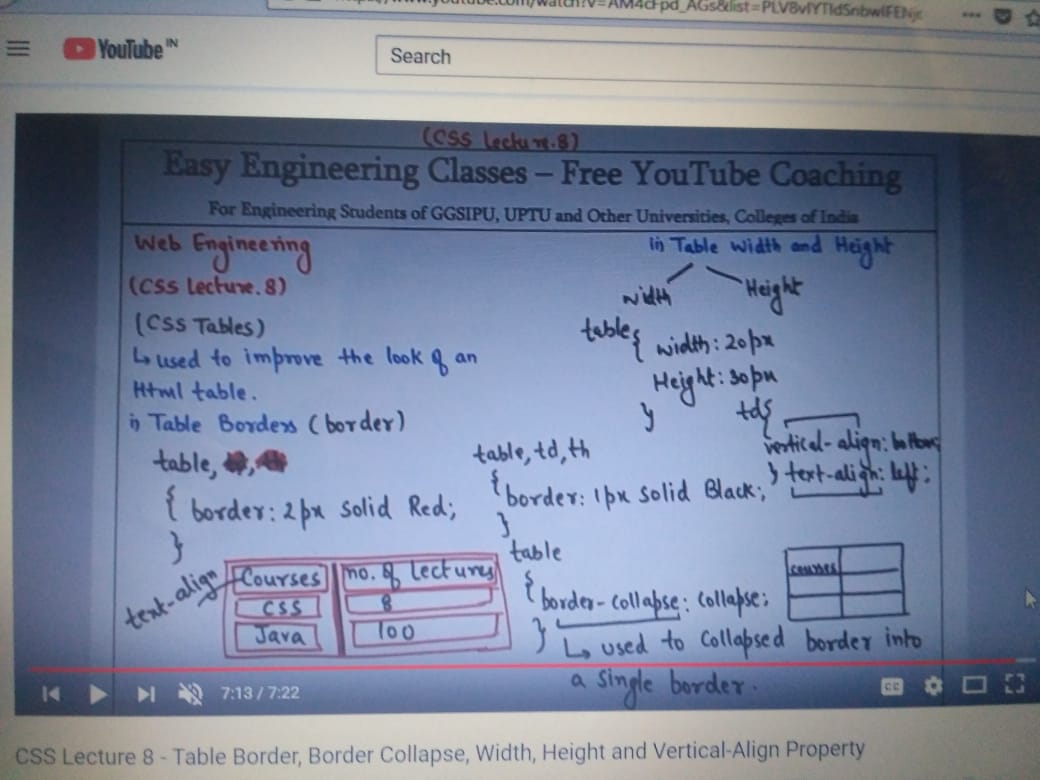 youtube.com/watch?v=AM4cFpd_AGs&list=PLV8vIYTIdSnbwIFENjc
YouTube IN
Search
(CSS Lecture.8)
Easy Engineering Classes – Free YouTube Coaching
For Engineering Students of GGSIPU, UPTU and Other Universities, Colleges of India
Web Engineering
(CSS Lecture.8)
(CSS Tables)
↳ used to improve the look of an
Html table.
i) Table Borders (border)
table,
{ border: 2px solid Red;
}
text-align
Courses no. of Lectures
CSS 8
Java 100
table, td, th
{
border: 1px solid Black;
}
table
{
border-collapse: collapse;
}
↳ used to Collapsed border into
a single border.
ii) Table Width and Height
width Height
table{
width: 20px
Height: 30px
}
td{
vertical-align: bottom;
} text-align: left;
courses
7:13 / 7:22
CC
CSS Lecture 8 - Table Border, Border Collapse, Width, Height and Vertical-Align Property